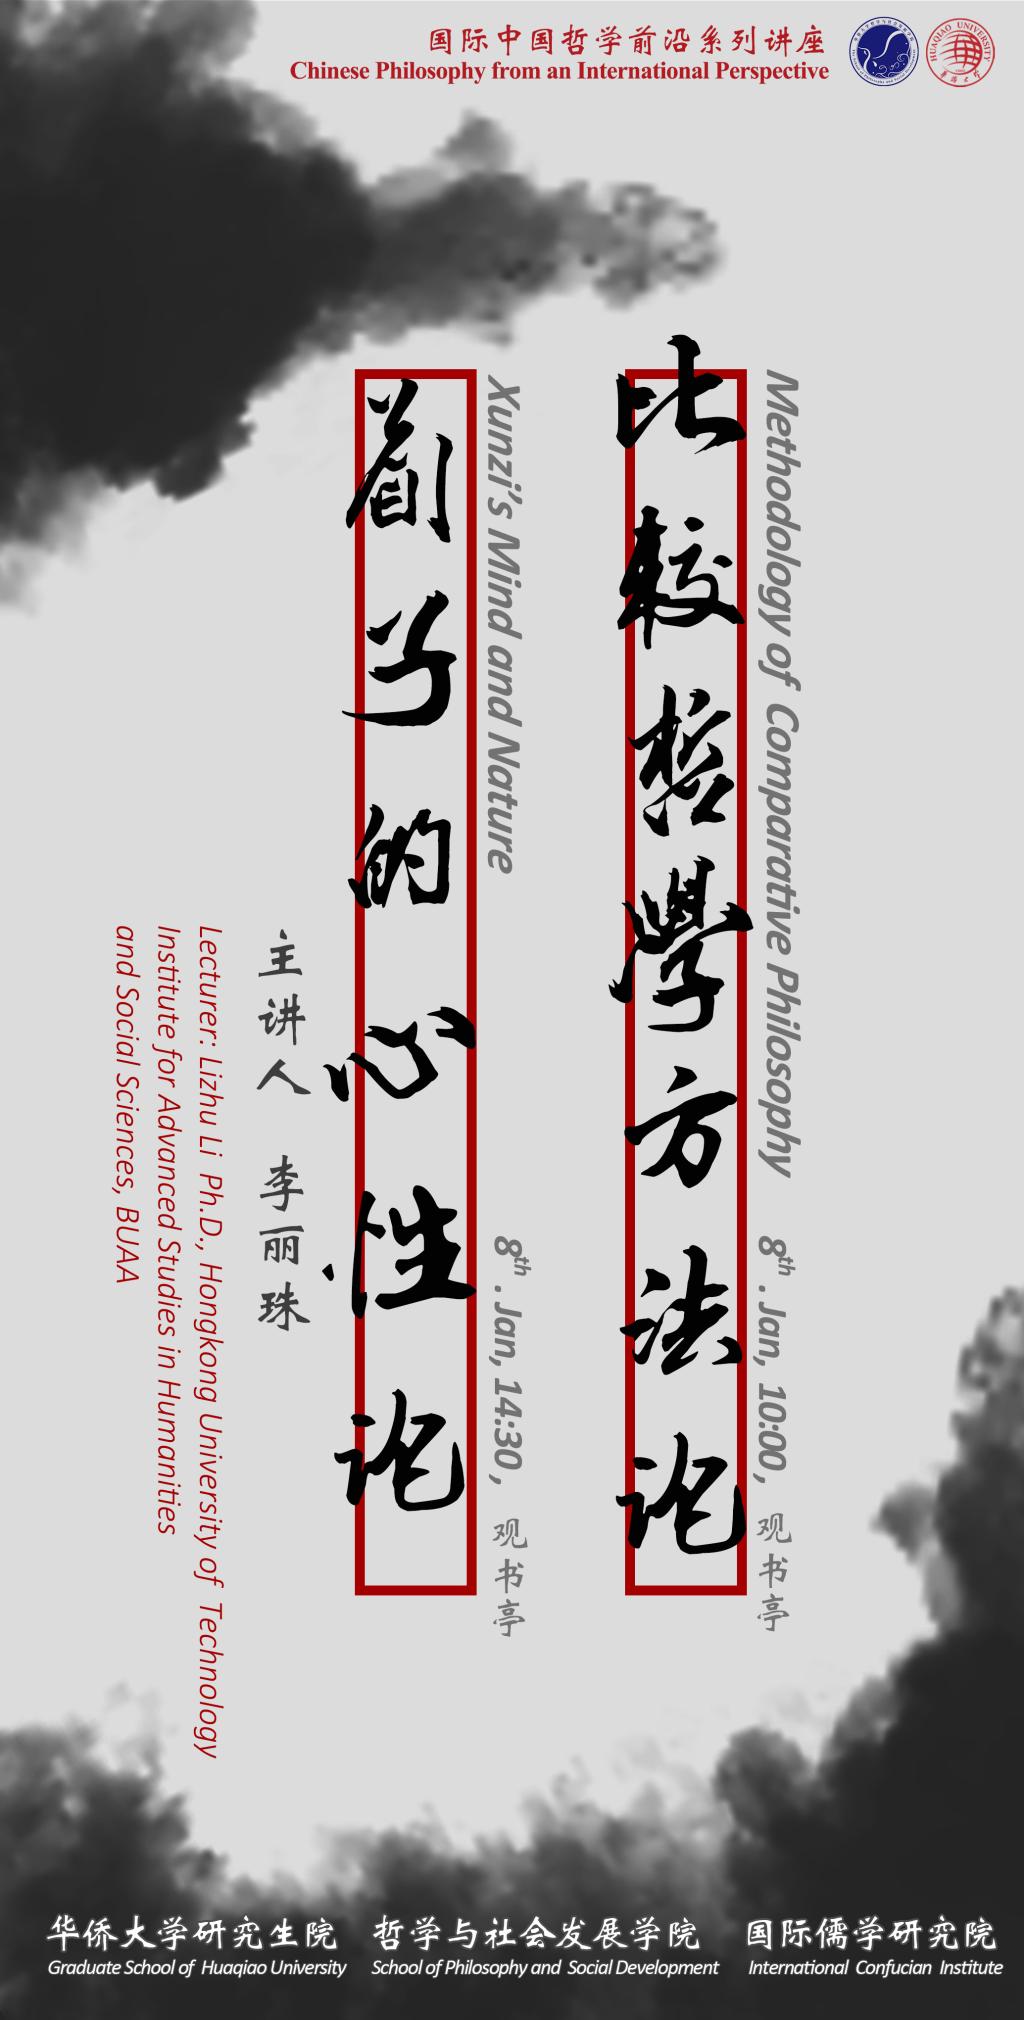 国际中国哲学前沿系列讲座
Chinese Philosophy from an International Perspective
HUAQIAO UNIVERSITY
华侨大学
Methodology of Comparative Philosophy
8th . Jan, 10:00 , 观书亭
比较哲學方法论
Xunzi's Mind and Nature
8th . Jan, 14:30 , 观书亭
荀子的心性论
主讲人 李丽珠
Lecturer: Lizhu Li Ph.D., Hongkong University of Technology
Institute for Advanced Studies in Humanities
and Social Sciences, BUAA
华侨大学研究生院 哲学与社会发展学院 国际儒学研究院
Graduate School of Huaqiao University School of Philosophy and Social Development International Confucian Institute